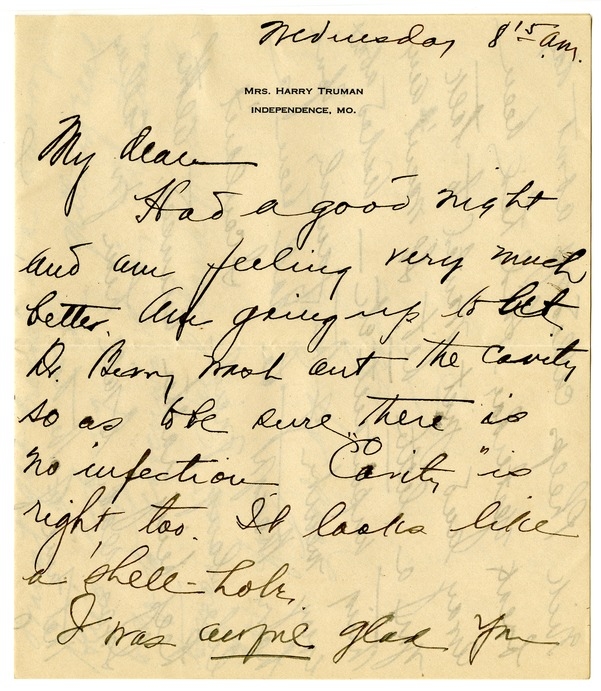 Wednesday 8 15 a.m.
MRS. HARRY TRUMAN
INDEPENDENCE, MO.
My dear—
Had a good night
and am feeling very much
better. Am going up to let
Dr. Berry wash out the cavity
so as to be sure there is
no infection "Cavity" is
right, too. It looks like
a shell-hole.
I was awful glad you